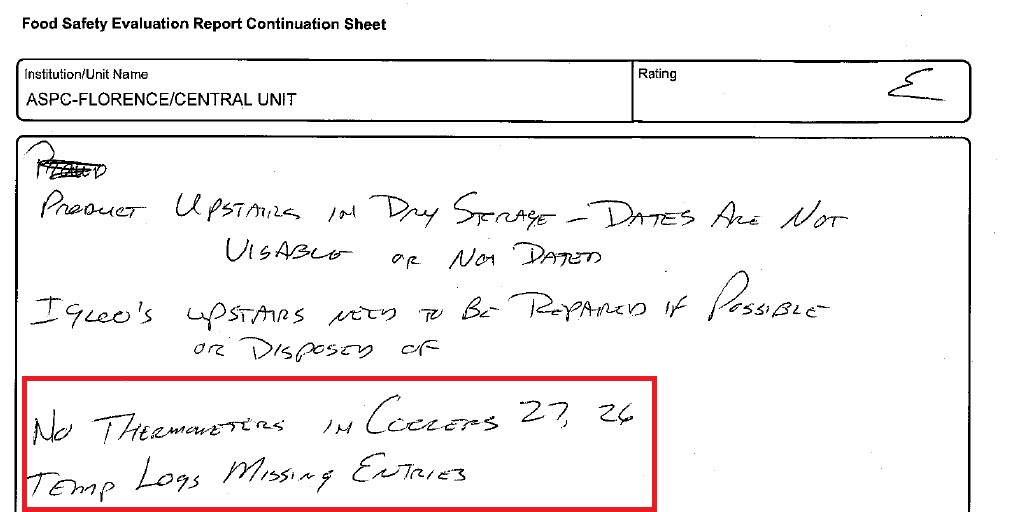 Food Safety Evaluation Report Continuation Sheet
Institution/Unit Name
ASPC-FLORENCE/CENTRAL UNIT
Rating
E
PRODUCT UPSTAIRS IN DRY STORAGE - DATES ARE NOT
VISABLE OR NOT DATED
IGLOO'S UPSTAIRS NEED TO BE REPARED IF POSSIBLE
OR DISPOSED OF
NO THERMOMETERS IN COOLERS 27, 26
TEMP LOGS MISSING ENTRIES